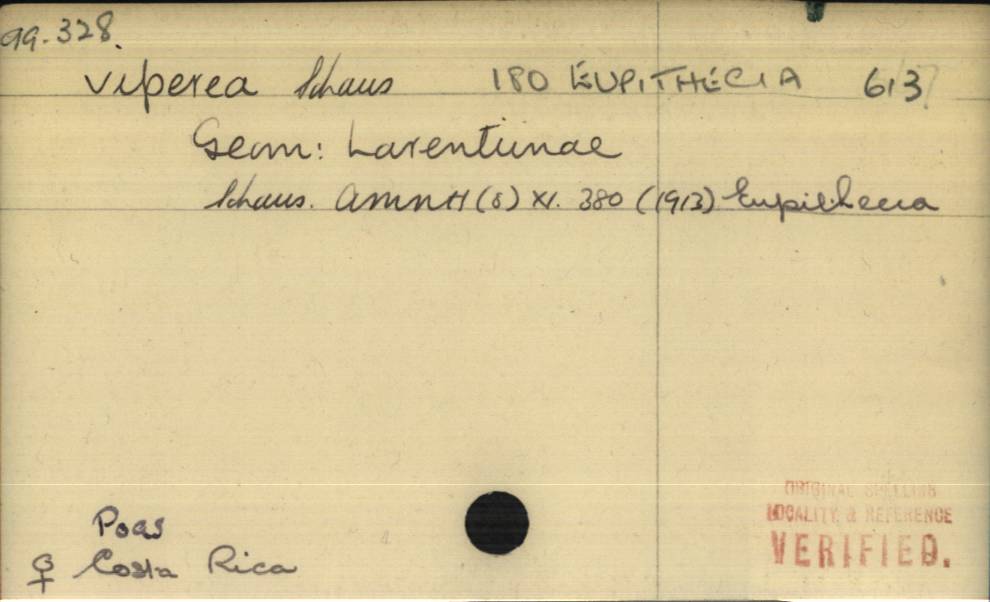 99.328.
viperea Schaus 180 EUPITHECIA 613
Geom: Larentiinae
Schaus. AMNH (8) XI. 380 (1913) Eupithecia
Poas
♀ Costa Rica
ORIGINAL SPELLING
LOCALITY & REFERENCE
VERIFIED.